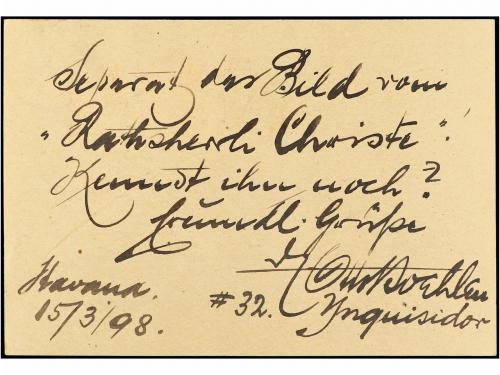 Separat das Bild vom
„Rathsherli Christe"!
Kennst ihn noch?
freundl. Grüße
Otto Koehler
Havana. #32. Ynquisidor
15/3/98.